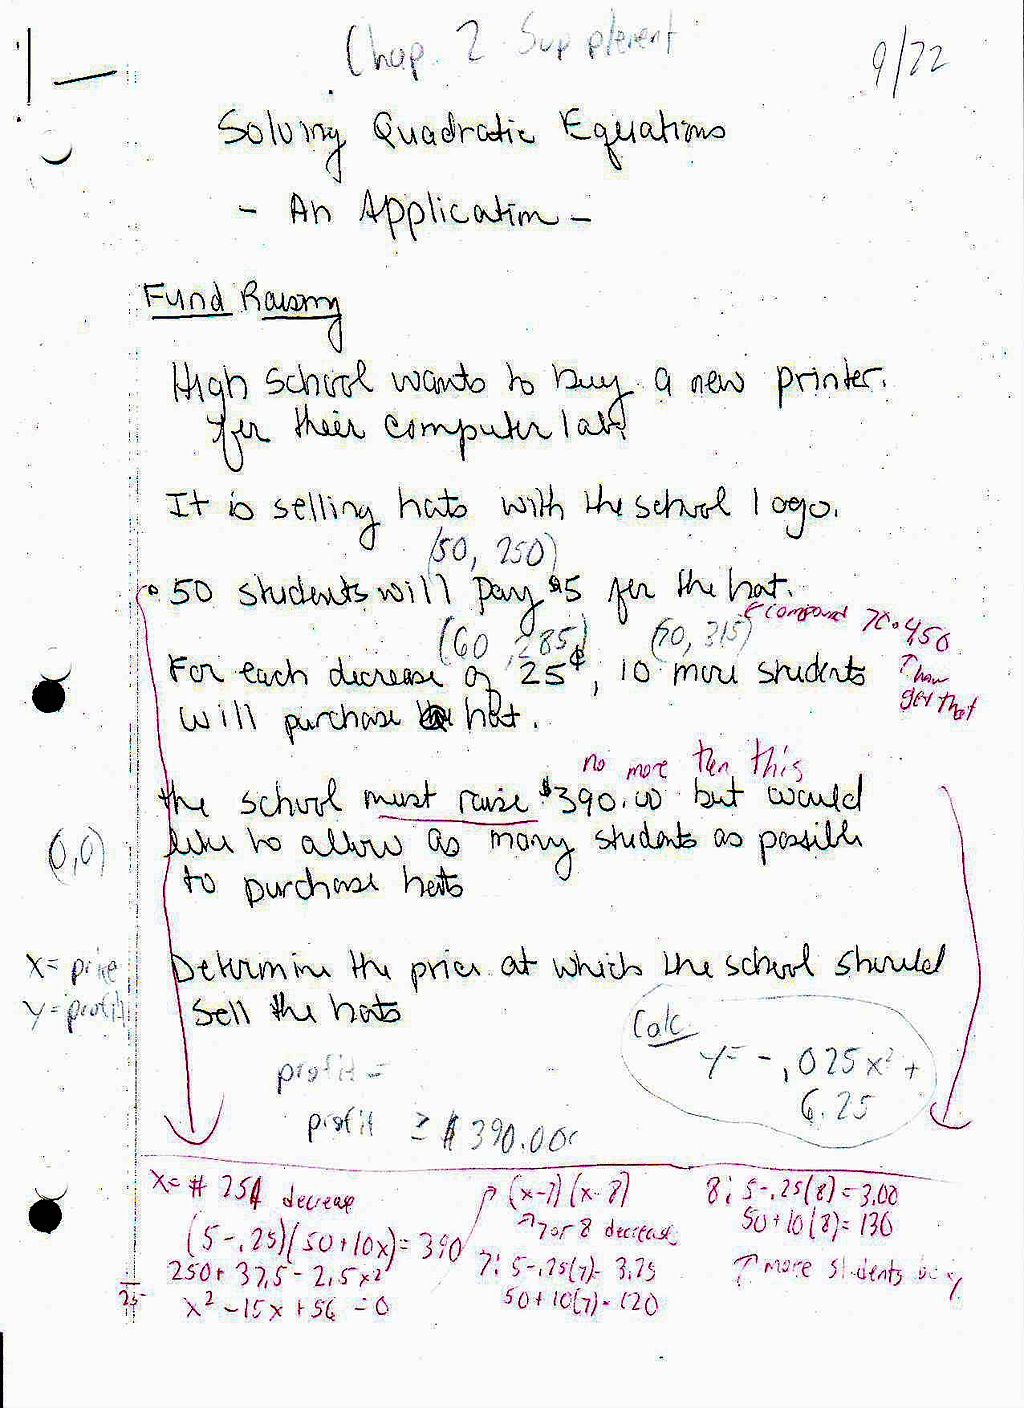 Chap. 2 Supplement
9/22
Solving Quadratic Equations
- An Application -
Fund Raising
High School wants to buy a new printer.
for their computer lab.
It is selling hats with the school logo.
(50, 250)
50 students will pay $5 for the hat.
compound 70.450
(60, 285) (70, 315)
For each decrease of 25¢, 10 more students
↑ how
get that
will purchase the hat.
no more then this
the school must raise $390.00 but would
like to allow as many students as possible
(0,0)
to purchase hats
X= price
Determine the price at which the school should
y= profit
sell the hats
Calc
y= -.025x² +
6.25
profit =
profit ≥ $390.00
X= # 25¢ decrease
(5-.25)(50+10x)= 390
250+ 37.5 - 2.5x²
x² -15x +56 = 0
25
(x-7)(x-8)
7 or 8 decrease
7: 5-.25(7)= 3.25
50+10(7)= 120
8: 5-.25(8)=3.00
50+10(8)= 130
↑ more students buy